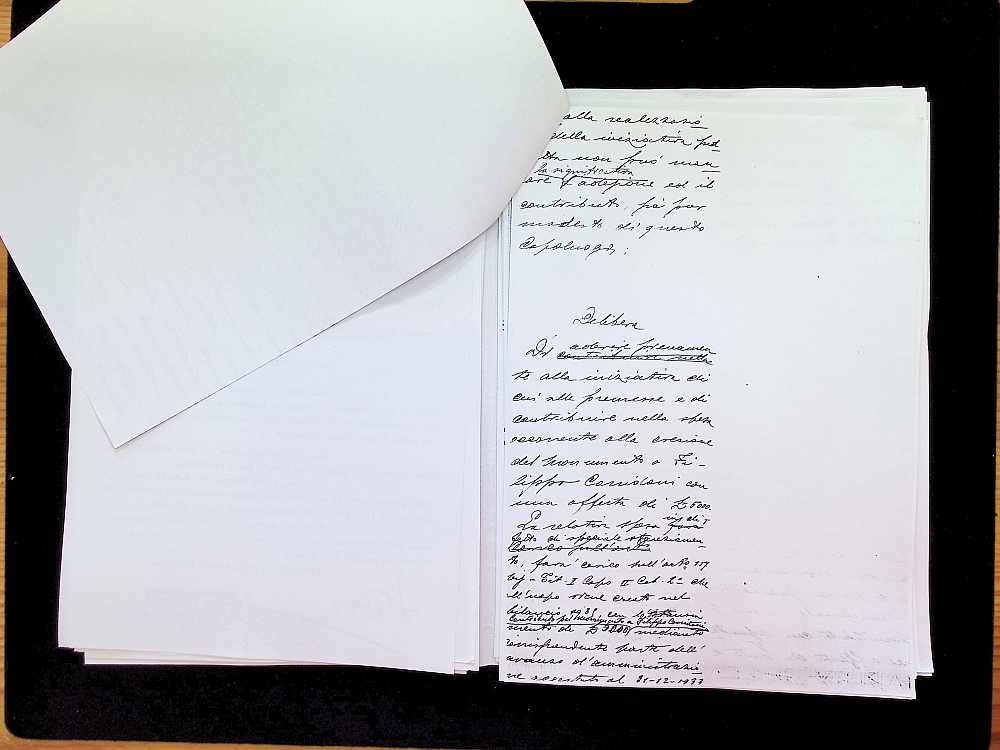 alla realizzazio
della iniziativa sud
detta non può man
la significativa
care l'adesione ed il
contributo, sia pur
modesto di questo
Capoluogo;
Delibera
aderire pienamen
Di contribuire nella
te alla iniziativa di
cui alle premesse e di
contribuire nella spesa
occorrente alla erezione
del monumento a Fi-
lippo Corridoni con
una offerta di £ 5000.
La relativa spesa farà
tto di speciale stanziamen-
carico sull'art.
to, farà carico sull'art.
Tit. I Capo II Cat. 2ª che
all'uopo viene creato nel
bilancio 1935 con lo stanzia
Contributo pel Monumento a Filippo Corridoni
mento di £ 5000 mediante
corrispondente parte dell'
avanzo d'amministrazio
ne accertato al 31-12-1933